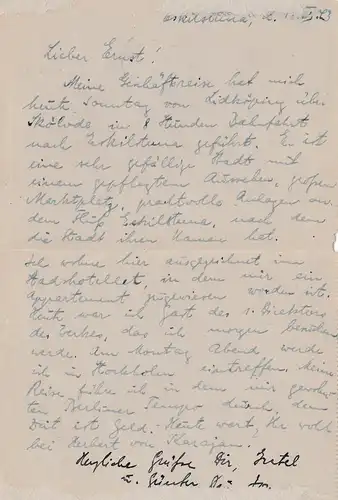 Eskilstuna, d.
Lieber Ernst!
Meine Geschäftsreise hat mich
heut Sonntag von Lidköping über
Skövde in 8 Stunden Bahnfahrt
nach Eskilstuna geführt. Es ist
eine sehr gefällige Stadt mit
einem gepflegten Aussehen, großem
Marktplatz, prachtvolle Anlagen an
dem Fluß Eskilstuna, nach dem
die Stadt ihren Namen hat.
Ich wohne hier ausgezeichnet im
Stadshotellet, in dem mir ein
Appartement zugewiesen worden ist.
Heut war ich Gast des 1. Direktors
des Werkes, das ich morgen besuchen
werde. Am Montag Abend werde
ich in Stockholm eintreffen. Meine
Reise führe ich in dem mir gewohn-
ten Berliner Tempo durch, denn
Zeit ist Geld. Heute wart Ihr wohl
bei Herbert von Karajan.
Herzliche Grüße Dir,
u. Günter